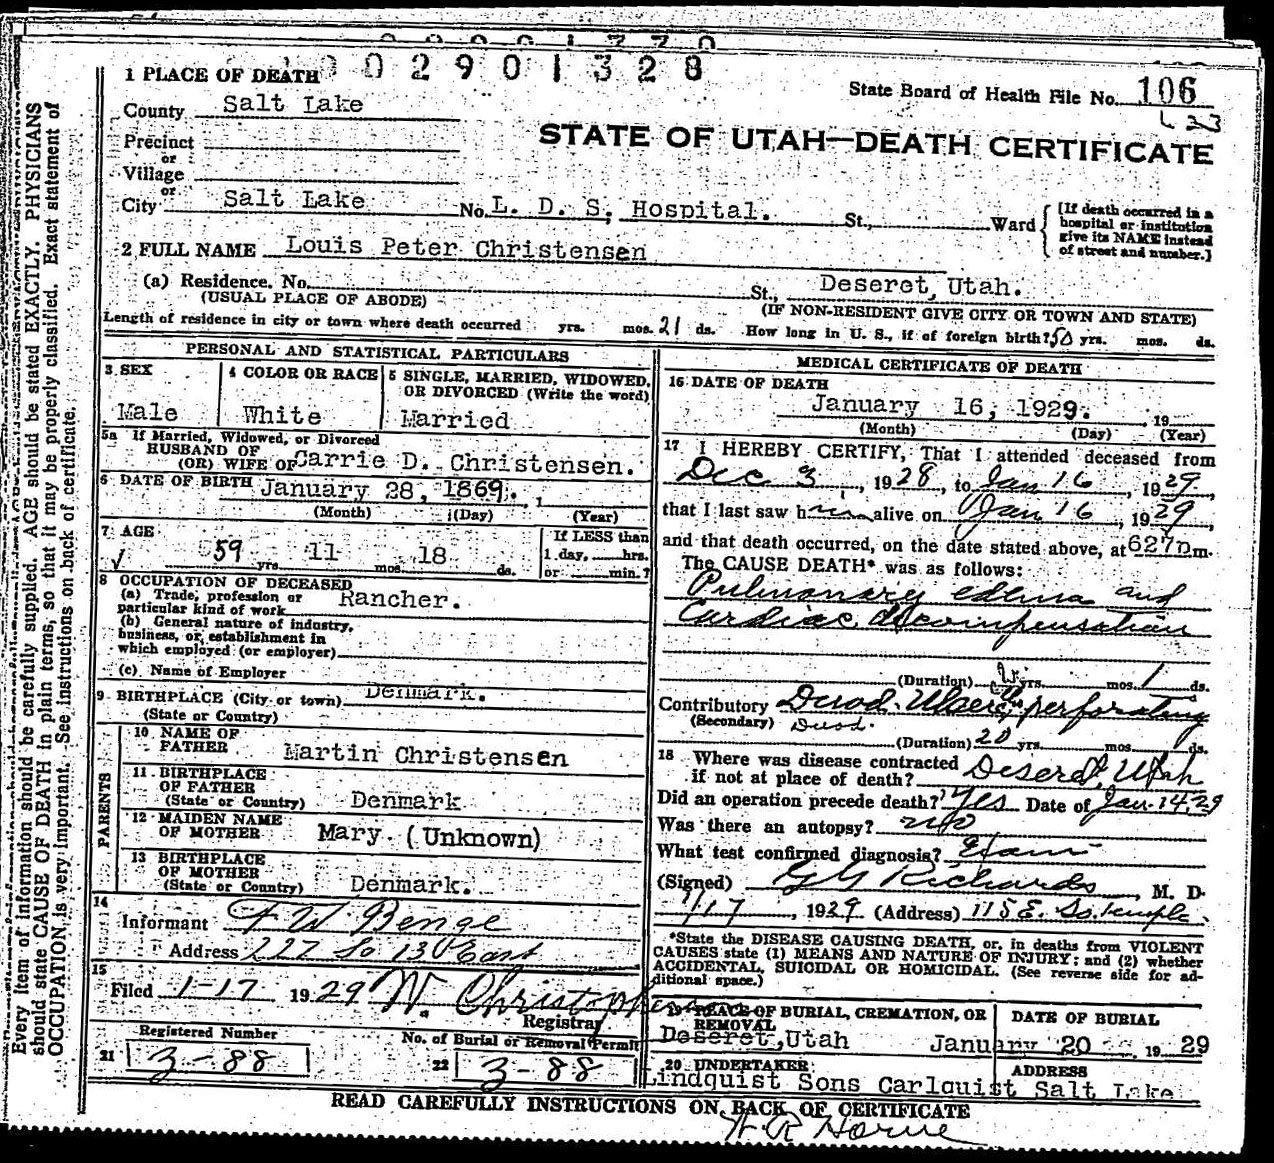 0 2 9 0 1 3 2 8
1 PLACE OF DEATH
State Board of Health File No. 106
County Salt Lake
STATE OF UTAH—DEATH CERTIFICATE
Precinct
or
Village
or
City Salt Lake No. L. D. S. Hospital. St., Ward
[If death occurred in a hospital or institution give its NAME instead of street and number.]
2 FULL NAME Louis Peter Christensen
(a) Residence. No. St., Deseret, Utah.
(USUAL PLACE OF ABODE) (IF NON-RESIDENT GIVE CITY OR TOWN AND STATE)
Length of residence in city or town where death occurred yrs. mos. 21 ds. How long in U. S., if of foreign birth? 50 yrs. mos. ds.
PERSONAL AND STATISTICAL PARTICULARS
3 SEX 4 COLOR OR RACE 5 SINGLE, MARRIED, WIDOWED, OR DIVORCED (Write the word)
Male White Married
5a If Married, Widowed, or Divorced
HUSBAND OF
(OR) WIFE OF Carrie D. Christensen.
6 DATE OF BIRTH January 28, 1869.
(Month) (Day) (Year)
7 AGE If LESS than
59 yrs. 11 mos. 18 ds. 1 day, hrs.
or min.?
8 OCCUPATION OF DECEASED
(a) Trade, profession or
particular kind of work Rancher.
(b) General nature of industry,
business, or establishment in
which employed (or employer)
(c) Name of Employer
9 BIRTHPLACE (City or town) Denmark.
(State or Country)
PARENTS
10 NAME OF
FATHER Martin Christensen
11 BIRTHPLACE
OF FATHER
(State or Country) Denmark
12 MAIDEN NAME
OF MOTHER Mary (Unknown)
13 BIRTHPLACE
OF MOTHER
(State or Country) Denmark.
14
Informant F W Benge
Address 227 So 13 East
15
Filed 1-17 1929 W. Christopherson
Registrar
Registered Number No. of Burial or Removal Permit
21 3-88 22 3-88
MEDICAL CERTIFICATE OF DEATH
16 DATE OF DEATH
January 16, 1929. 19
(Month) (Day) (Year)
17 I HEREBY CERTIFY, That I attended deceased from
Dec 3, 1928, to Jan 16, 1929,
that I last saw him alive on Jan 16, 1929,
and that death occurred, on the date stated above, at 627 p m.
The CAUSE DEATH* was as follows:
Pulmonary edema and
Cardiac decompensation
(Duration) yrs. mos. 1 ds.
Contributory Duod. Ulcer, perforating
(Secondary) Duod.
(Duration) 20 yrs. mos. ds.
18 Where was disease contracted
if not at place of death? Deseret, Utah
Did an operation precede death? Yes Date of Jan. 14, 29
Was there an autopsy? no
What test confirmed diagnosis? Exam
(Signed) G G Richards, M. D.
1/17, 1929 (Address) 115 E. So. Temple.
*State the DISEASE CAUSING DEATH, or, in deaths from VIOLENT
CAUSES state (1) MEANS AND NATURE OF INJURY; and (2) whether
ACCIDENTAL, SUICIDAL OR HOMICIDAL. (See reverse side for ad-
ditional space.)
19 PLACE OF BURIAL, CREMATION, OR REMOVAL DATE OF BURIAL
Deseret, Utah January 20, 1929
20 UNDERTAKER ADDRESS
Lindquist Sons Carlquist Salt Lake
READ CAREFULLY INSTRUCTIONS ON BACK OF CERTIFICATE
Every item of information should be carefully supplied. AGE should be stated EXACTLY. PHYSICIANS
should state CAUSE OF DEATH in plain terms, so that it may be properly classified. Exact statement of
OCCUPATION is very important. See instructions on back of certificate.